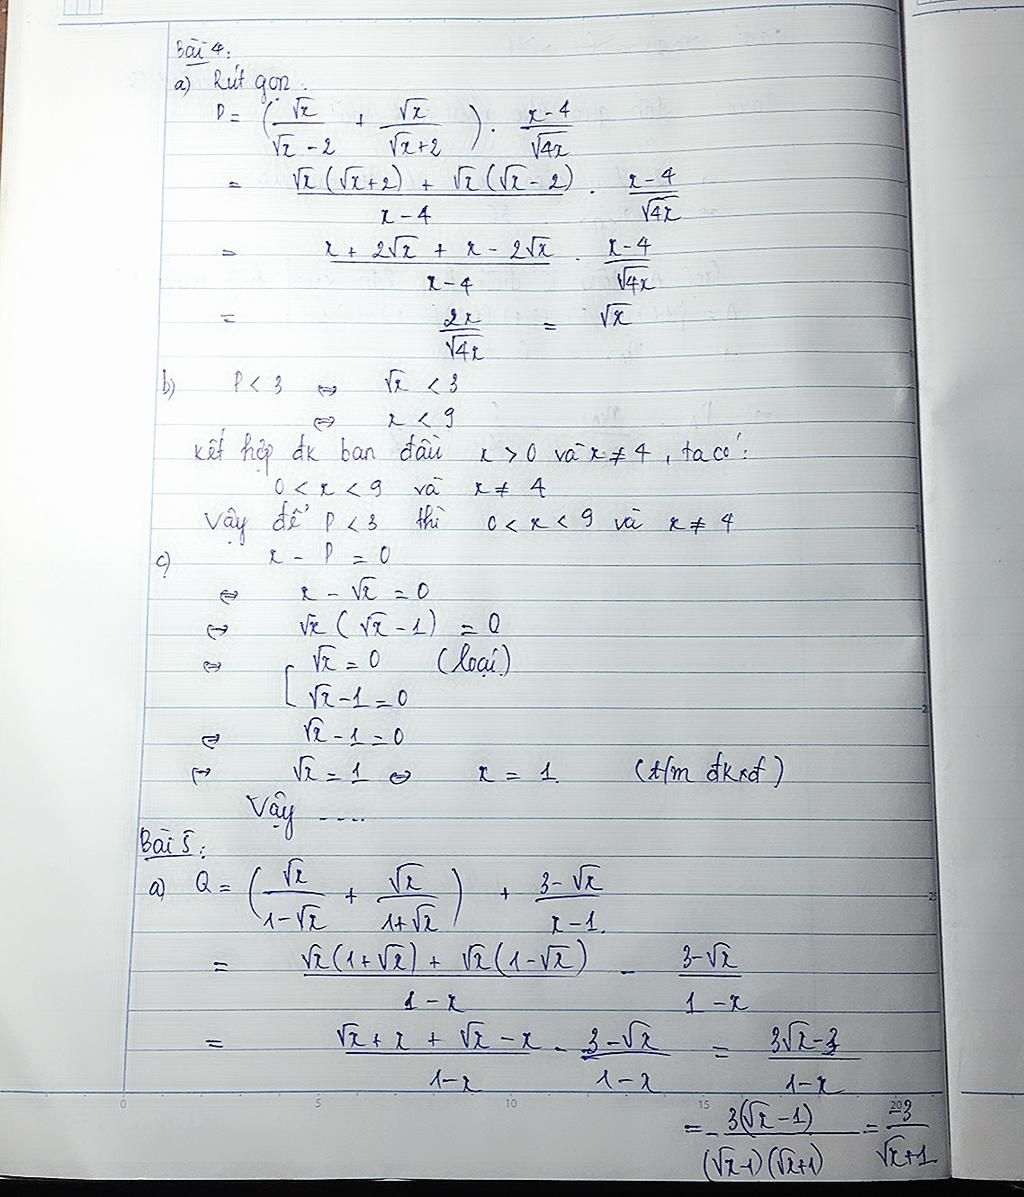 Bài 4:
a) Rút gọn:
P = (√x/(√x - 2) + √x/(√x+2)) . (x-4)/√4x
= (√x(√x+2) + √x(√x-2))/(x-4) . (x-4)/√4x
= (x + 2√x + x - 2√x)/(x-4) . (x-4)/√4x
= 2x/√4x = √x
b) P < 3 ⇔ √x < 3
⇔ x < 9
kết hợp đk ban đầu x > 0 và x ≠ 4, ta có:
0 < x < 9 và x ≠ 4
Vậy để P < 3 thì 0 < x < 9 và x ≠ 4
c) x - P = 0
⇔ x - √x = 0
⇔ √x (√x - 1) = 0
⇔ [ √x = 0 (loại)
√x - 1 = 0
⇔ √x - 1 = 0
⇔ √x = 1 ⇔ x = 1. (t/m đkxđ)
Vậy ....
Bài 5:
a) Q = (√x/(1-√x) + √x/(1+√x)) + (3-√x)/(x-1).
= (√x(1+√x) + √x(1-√x))/(1-x) - (3-√x)/(1-x)
= (√x + x + √x - x)/(1-x) - (3-√x)/(1-x) = (3√x-3)/(1-x)
= - 3(√x-1)/((√x-1)(√x+1)) = -3/(√x+1)
0 5 10 15 20
25